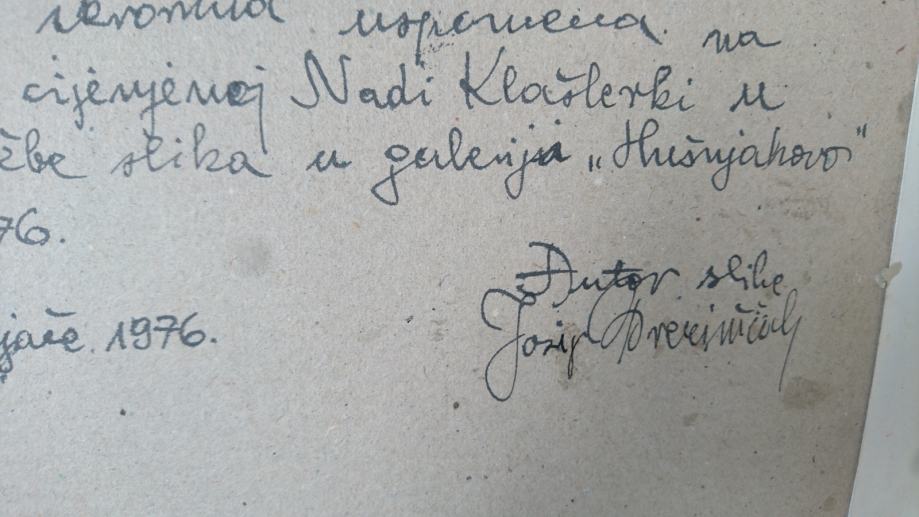 skromna uspomena na
cijenjenoj Nadi Klašterki u
žbe slika u galeriji „Hušnjakovo"
76.
Autor slike
jače 1976.
Josip